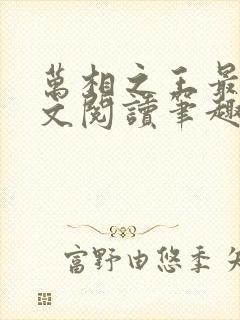 萬相之王最
文閱讀筆趣
富野由悠季